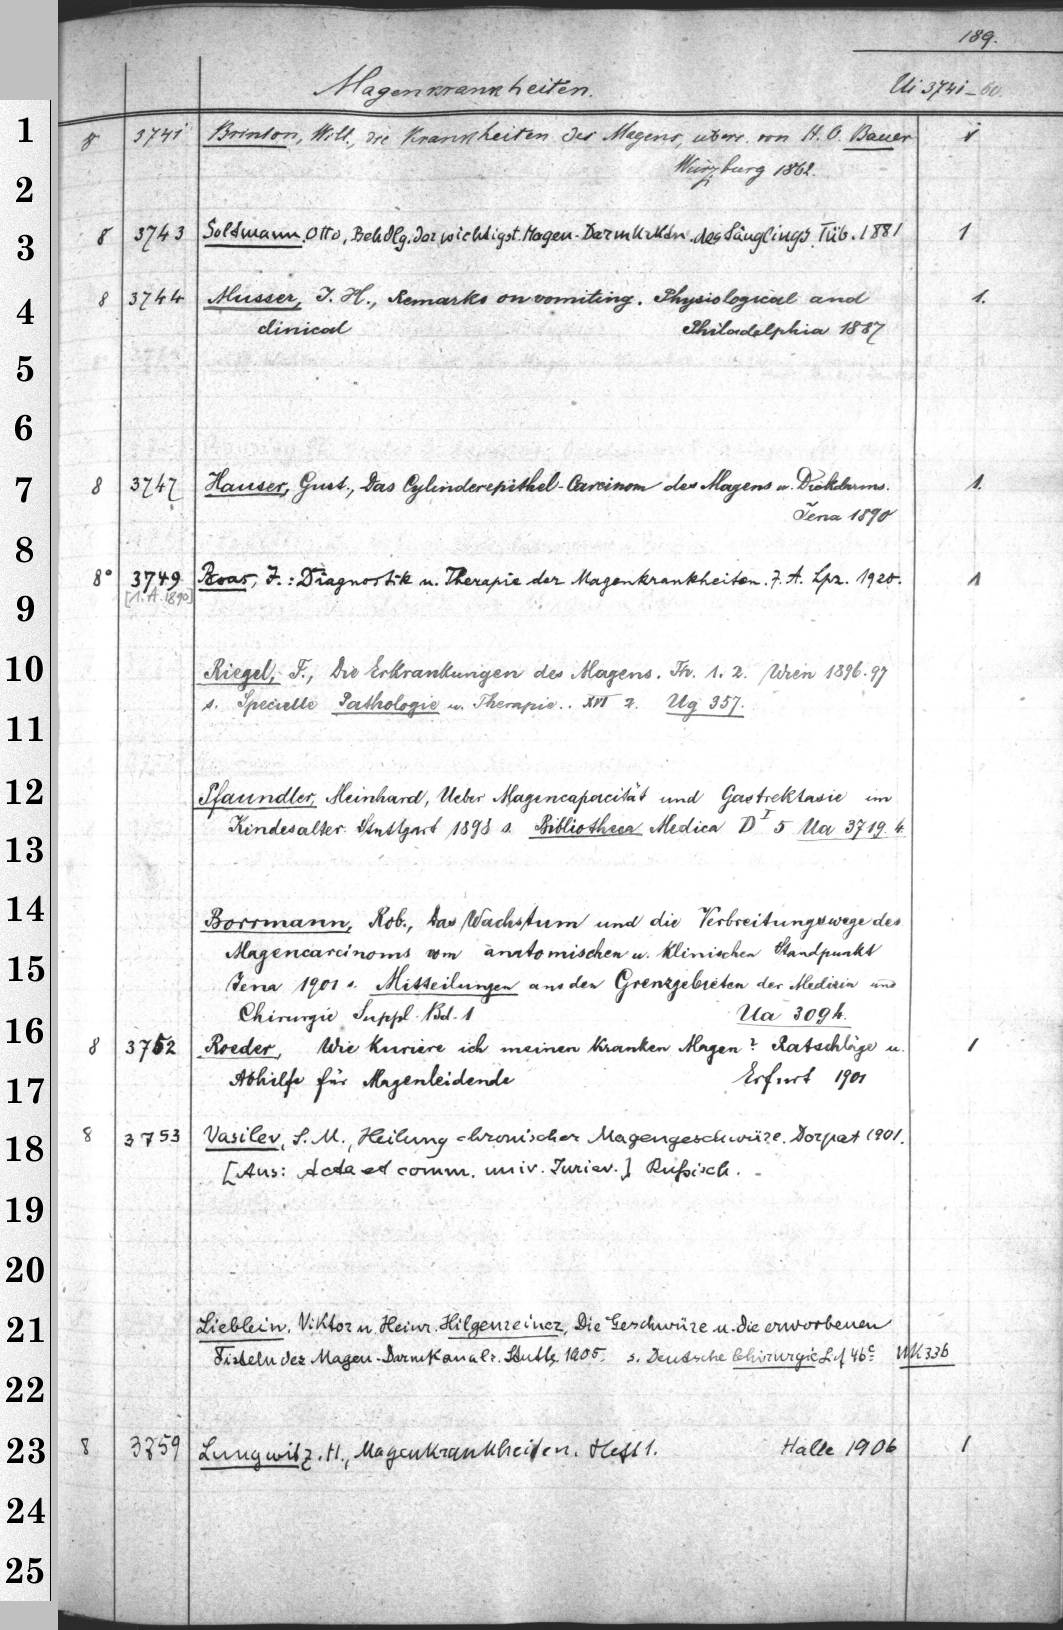 189.
Magenkrankheiten. Ui 3741-60.
1 8 3741 Brinton, Will., die Krankheiten des Magens, übers. von H. O. Bauer 1
2 Würzburg 1862.
3 8 3743 Soltmann, Otto, Behdlg. der wichtigst. Magen-Darmkrkhtn. des Säuglings. Tüb. 1881 1
4 8 3744 Musser, J. H., Remarks on vomiting. Physiological and 1.
clinical Philadelphia 1887
5
6
7 8 3747 Hauser, Gust., Das Cylinderepithel-Carcinom des Magens u. Dickdarms. 1.
Jena 1890
8
8° 3749 Boas, J.: Diagnostik u. Therapie der Magenkrankheiten. 7. A. Lpz. 1920. 1
9 [1. A. 1890]
10 Riegel, F., Die Erkrankungen des Magens. Th. 1. 2. Wien 1896-97
s. Specielle Pathologie u. Therapie.. XVI 2. Ug 357.
11
12 Pfaundler, Meinhard, Ueber Magencapacität und Gastrektasie im
Kindesalter. Stuttgart 1898 s. Bibliotheca Medica D I 5 Ua 3719. 4.
13
14 Borrmann, Rob., Das Wachstum und die Verbreitungswege des
15 Magencarcinoms vom anatomischen u. klinischen Standpunkt
Jena 1901 s. Mitteilungen aus den Grenzgebieten der Medizin und
Chirurgie Suppl. Bd. 1 Ua 309h.
16 8 3752 Roeder, Wie kuriere ich meinen kranken Magen? Ratschläge u. 1
17 Abhilfe für Magenleidende Erfurt 1901
18 8 3753 Vasilev, S. M., Heilung chronischer Magengeschwüre. Dorpat 1901.
[Aus: Acta et comm. univ. Juriev.] Russisch.
19
20
21 Lieblein, Viktor u. Heinr. Hilgenreiner, Die Geschwüre u. die erworbenen
Fisteln des Magen-Darmkanals. Stuttg. 1905. s. Deutsche Chirurgie Lf 46c Uk 336
22
23 8 3759 Lungwitz, H., Magenkrankheiten. Heft 1. Halle 1906 1
24
25